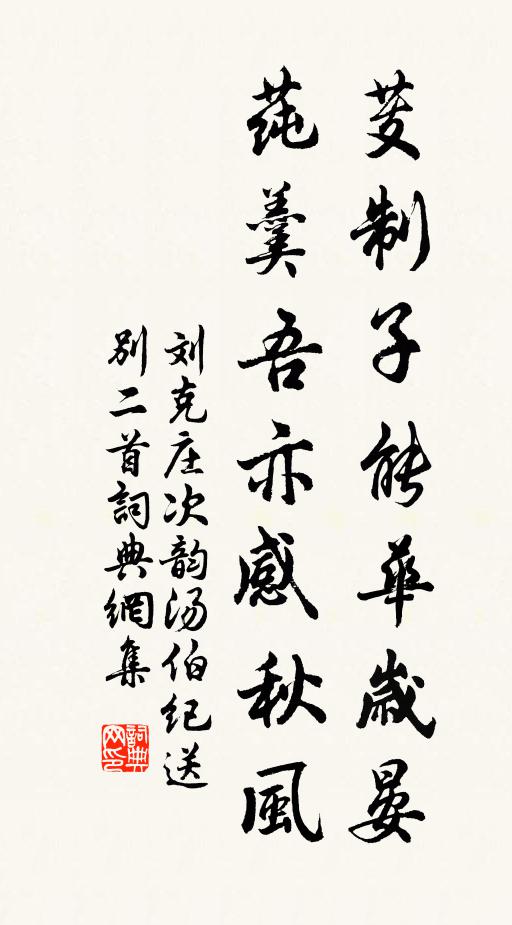 芰制子能華歲晏
莼羹吾亦感秋風
刘克庄次韵汤伯纪送
别二首詞典網集
詞典
网印